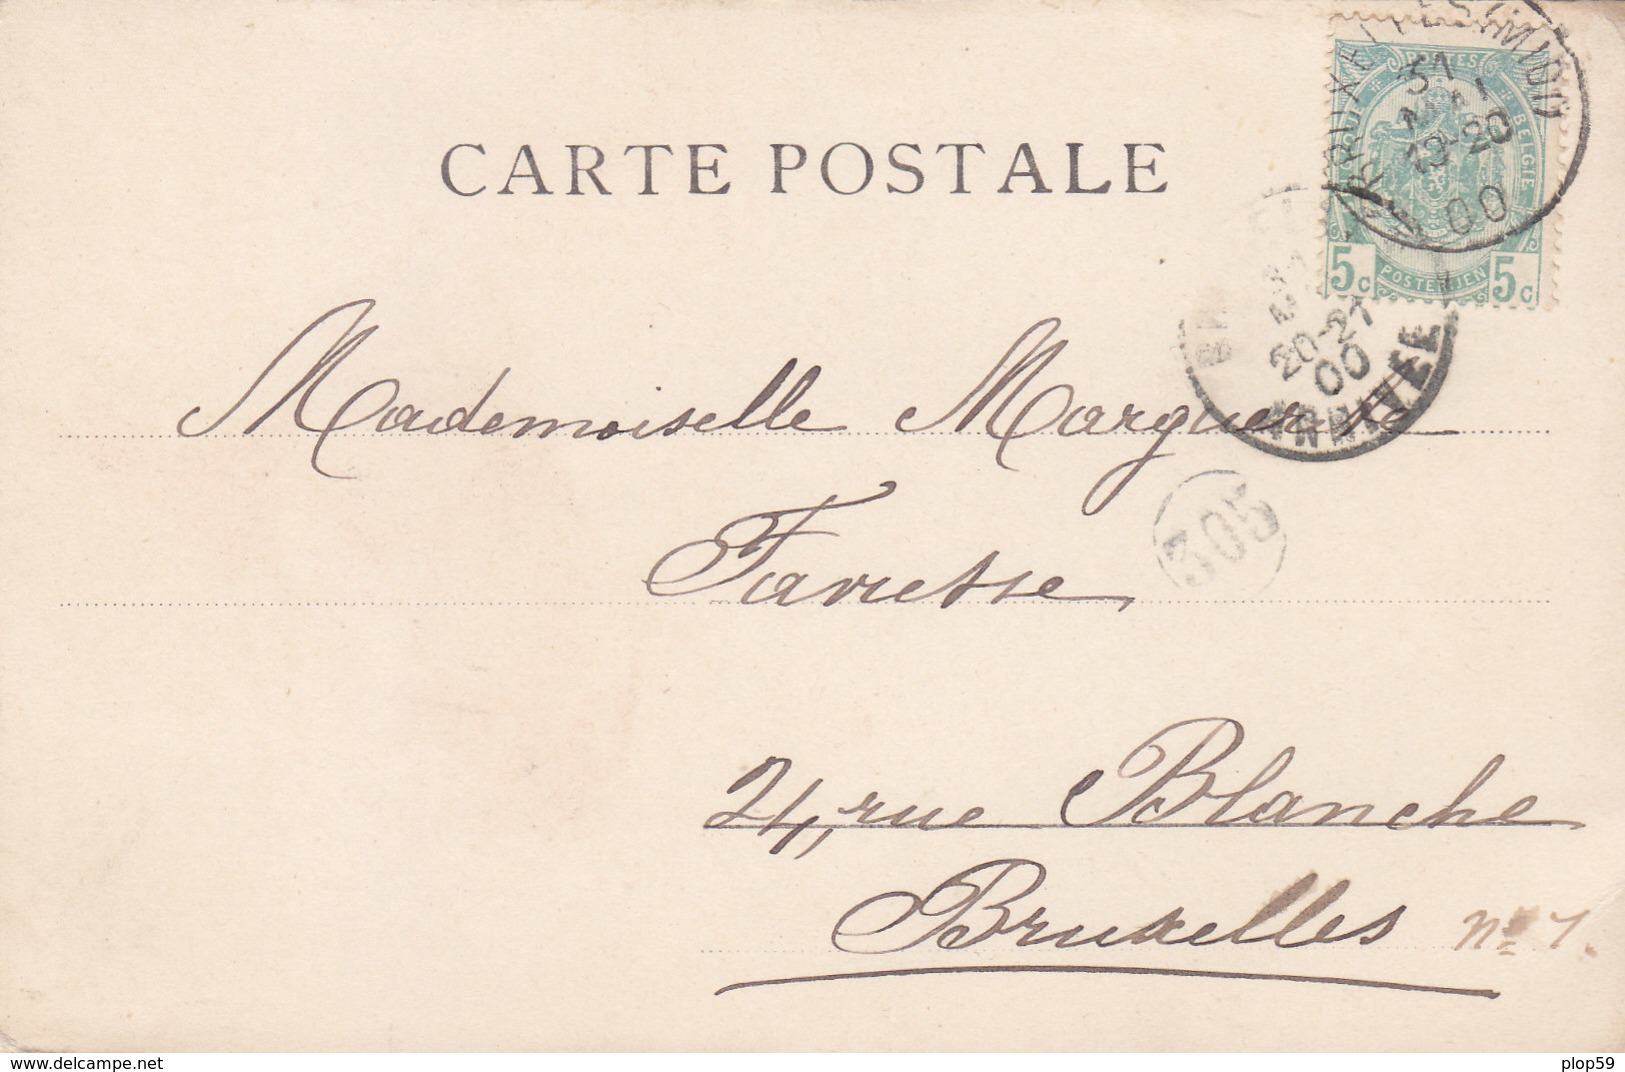 CARTE POSTALE
BRUXELLES (MIDI)
31
MAI
19-20
00
POSTES
BELGIQUE
BELGIE
POSTERIJEN
5c
5c
20-21
00
ARRIVEE
Mademoiselle Marguerite
305
24, rue Blanche
Bruxelles
N° 1.
delcampe.net
plop59